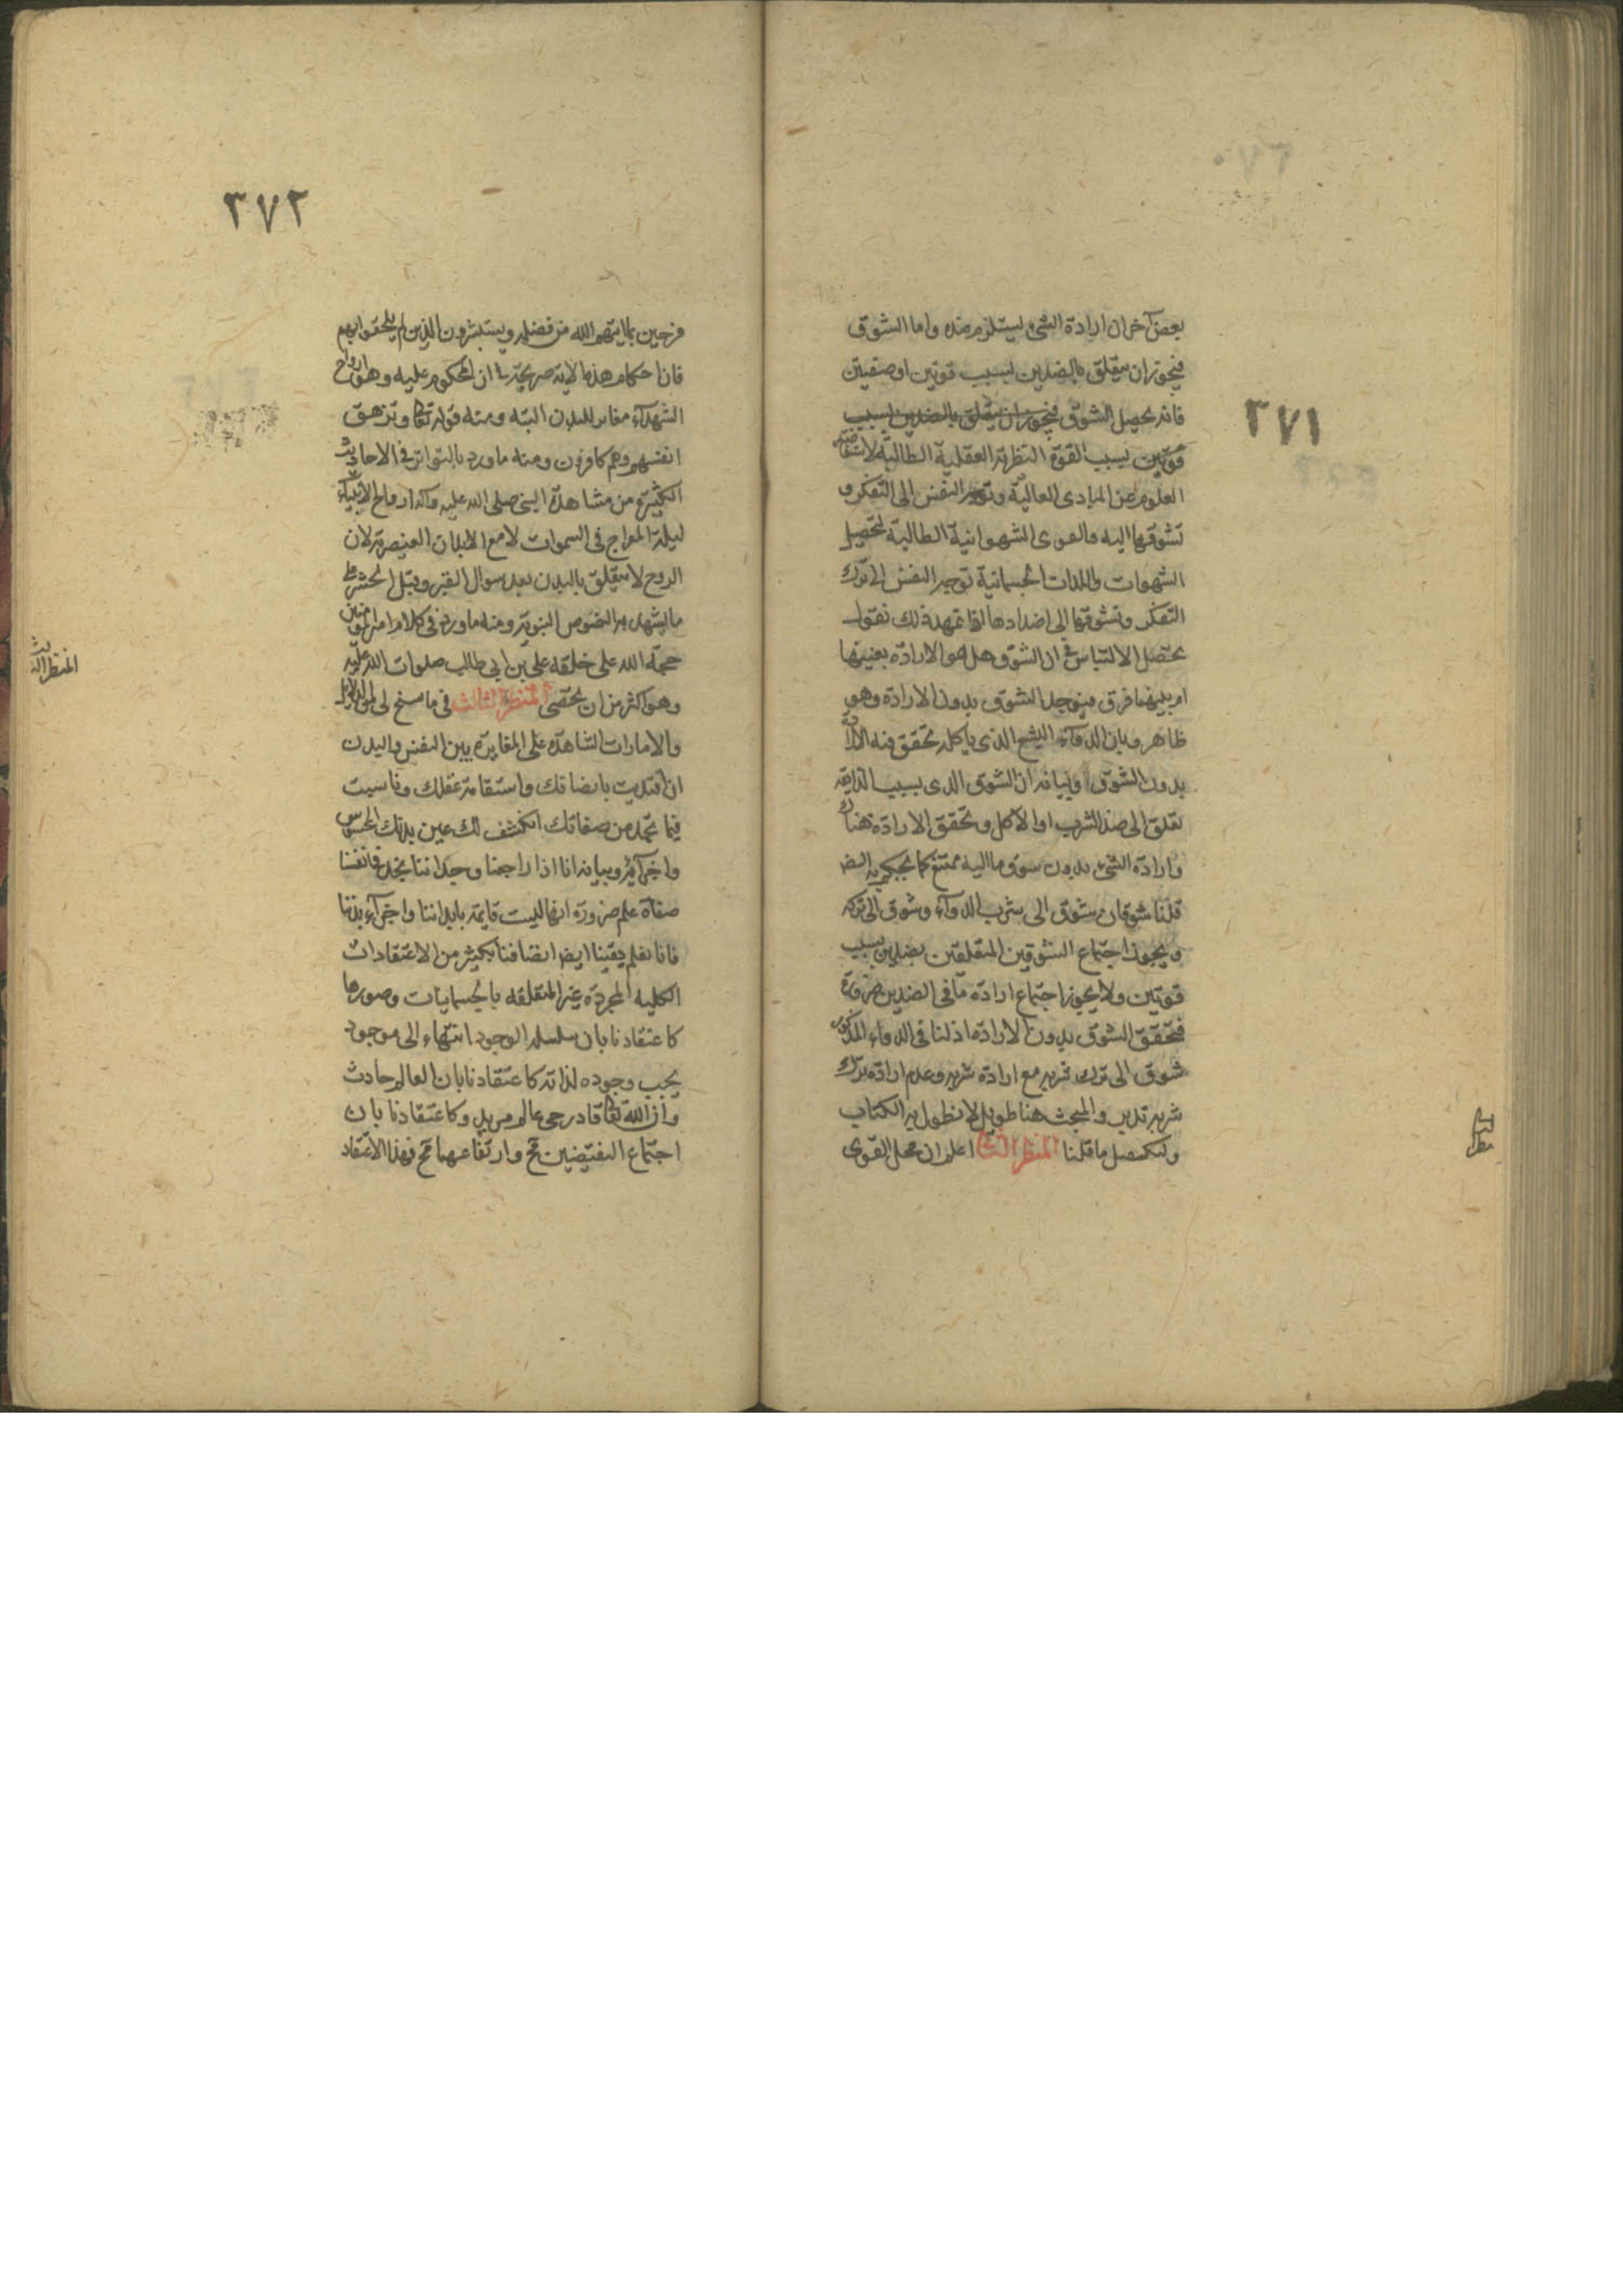 ٣٧١
بعض آخر ان ارادة الشئ يستلزم ضده واما الشوق
فيجوز ان يتعلق بالضدين بسبب قوتين او صفتين
فانه يحصل الشوق فيجوز ان يتعلق بالضدين بسبب
قوتين بسبب القوة النظرية العقلية الطالبة لاستفاضة
العلوم عن المبادى العالية وتوجه النفس الى التفكر و
تشوقها اليه والقوى الشهوانية الطالبة لتحصيل
الشهوات واللذات الجسمانية توجه النفس الى ترك
التفكر وتشوقها الى اضدادها اذا تمهد ذلك نقول
يحصل الالتباس فى ان الشوق هل هو الارادة بعينها
ام بينهما فرق فيوجد الشوق بدون الارادة وهو
ظاهر وبان الدوآء البشع الذى ياكله تحقق فيه الارادة
بدون الشوق وبيانه ان الشوق الذى بسبب الذايقة
تعلق الى ضد الشرب او الاكل وتحقق الارادة هناك
وارادة الشئ بدون شوق ما اليه ممتنع كما يحكم به
قلنا شوقان شوق الى شرب الدوآء وشوق الى تركه
ويجوز اجتماع الشوقين المتعلقين بضدين بسبب
قوتين ولا يجوز اجتماع ارادة ما فى الضدين ضرورة
فتحقق الشوق بدون الارادة اذ لنا فى الدواء المذكور
شوق الى ترك شربه مع ارادة شربه وعدم ارادة ترك
شربه تدبر والمبحث هنا طويل لا نطول به الكتاب
ولنكتف ما قلنا المنظر الثانى اعلم ان محل القوى
٣٧٢
فرحين بما اتيهم الله من فضله ويستبشرون بالذين لم يلحقوا بهم
فان احكام هذه الاية صريحة فى ان المحكوم عليه وهو ارواح
الشهدآء مغاير للبدن البتة ومنه قوله تعا وتزهق
انفسهم وهم كافرون ومنه ما ورد بالتواتر فى الاحاديث
الكثيرة من مشاهدة النبى صلى الله عليه وآله ارواح الانبيآء
ليلة المعراج فى السموات لا مع الابدان العنصرية لان
الروح لا يتعلق بالبدن بعد سوال القبر وقبل الحشر على
ما يشهد به النصوص النبوية ومنه ما ورد فى كلام امير المؤمنين
حجة الله على خلقه على بن ابى طالب صلوات الله عليه
وهو اكثر من ان يحصى المنظر الثالث فى ما سنح لى من الدلايل
والامارات الشاهدة على المغايرة بين النفس والبدن
ان اقتديت بانصافك واستقامة عقلك وقاسيت
فيما تجده من صفاتك انكشف لك عين بدنك المحسوس
واجزآئه وبيانه انا اذا راجعنا وجداننا نجد فى انفسنا
صفاة علم ضرورة انها ليست قايمة بابداننا واجزآء بدننا
فانا نعلم يقينا ايضا اتصافنا بكثير من الاعتقادات
الكلية المجردة غير المتعلقة بالجسمانيات وصورها
كاعتقادنا بان سلسلة الوجود انتهاء الى موجود
يجب وجوده لذاته كاعتقادنا بان العالم حادث
وان الله تعا قادر حى عالم مريد وكاعتقادنا بان
اجتماع النقيضين مح وارتفاعهما مح فهذا الاعتقاد
المنظر الثالث